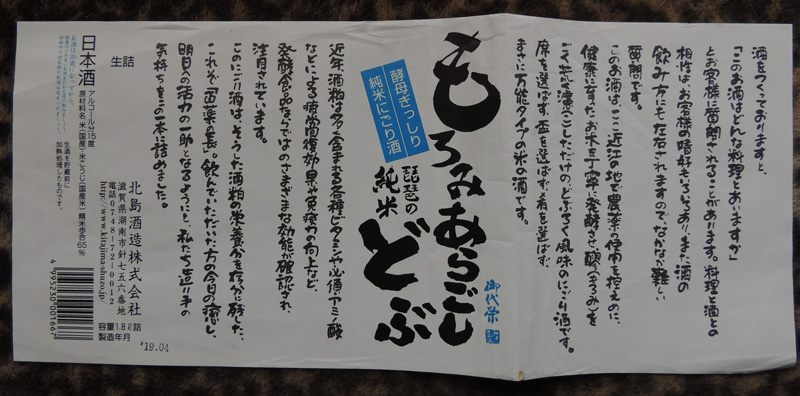 酒をつくっておりますと、
「このお酒はどんな料理とあいますか」
とお客様に質問されることがあります。料理と酒との
相性は、お客様の嗜好もいろいろあり、また酒の
飲み方にも左右されますので、なかなか難しい
質問です。
このお酒は、ここ近江の地で農薬の使用を控えめに、
健康に育ったお米を丁寧に発酵させ、醪(もろみ)を
ごくあらく漉(こ)しただけの、どぶろく風味のにごり酒です。
席を選ばず、盃を選ばず、肴を選ばず、
まさに万能タイプの米の酒です。
御代栄
もろみあらごし
琵琶の
純米
どぶ
酵母ぎっしり
純米にごり酒
近年、酒粕に多く含まれる各種ビタミンや必須アミノ酸
などによる疲労回復効果や免疫力の向上など、
発酵食品ならではのさまざまな効能が確認され、
注目されています。
このにごり酒は、そうした酒粕の栄養分を存分に残した、
これぞ「百薬の長」。飲んでいただいた方の今日の癒し、
明日への活力の一助となるようにと、私たち造り手の
気持ちをこの一本に詰めました。
生詰
北島酒造株式会社
滋賀県湖南市針七五六番地
電話0748-72-0012
http://www.kitajima-shuzo.jp/
容量1.8ℓ詰
製造年月
'19.04
お酒は20歳になってから。
日本酒
アルコール分15度
原材料名 米(国産)・米こうじ(国産米)
精米歩合65%
生酒を貯蔵前に
加熱処理したものです。
4 952300 001667